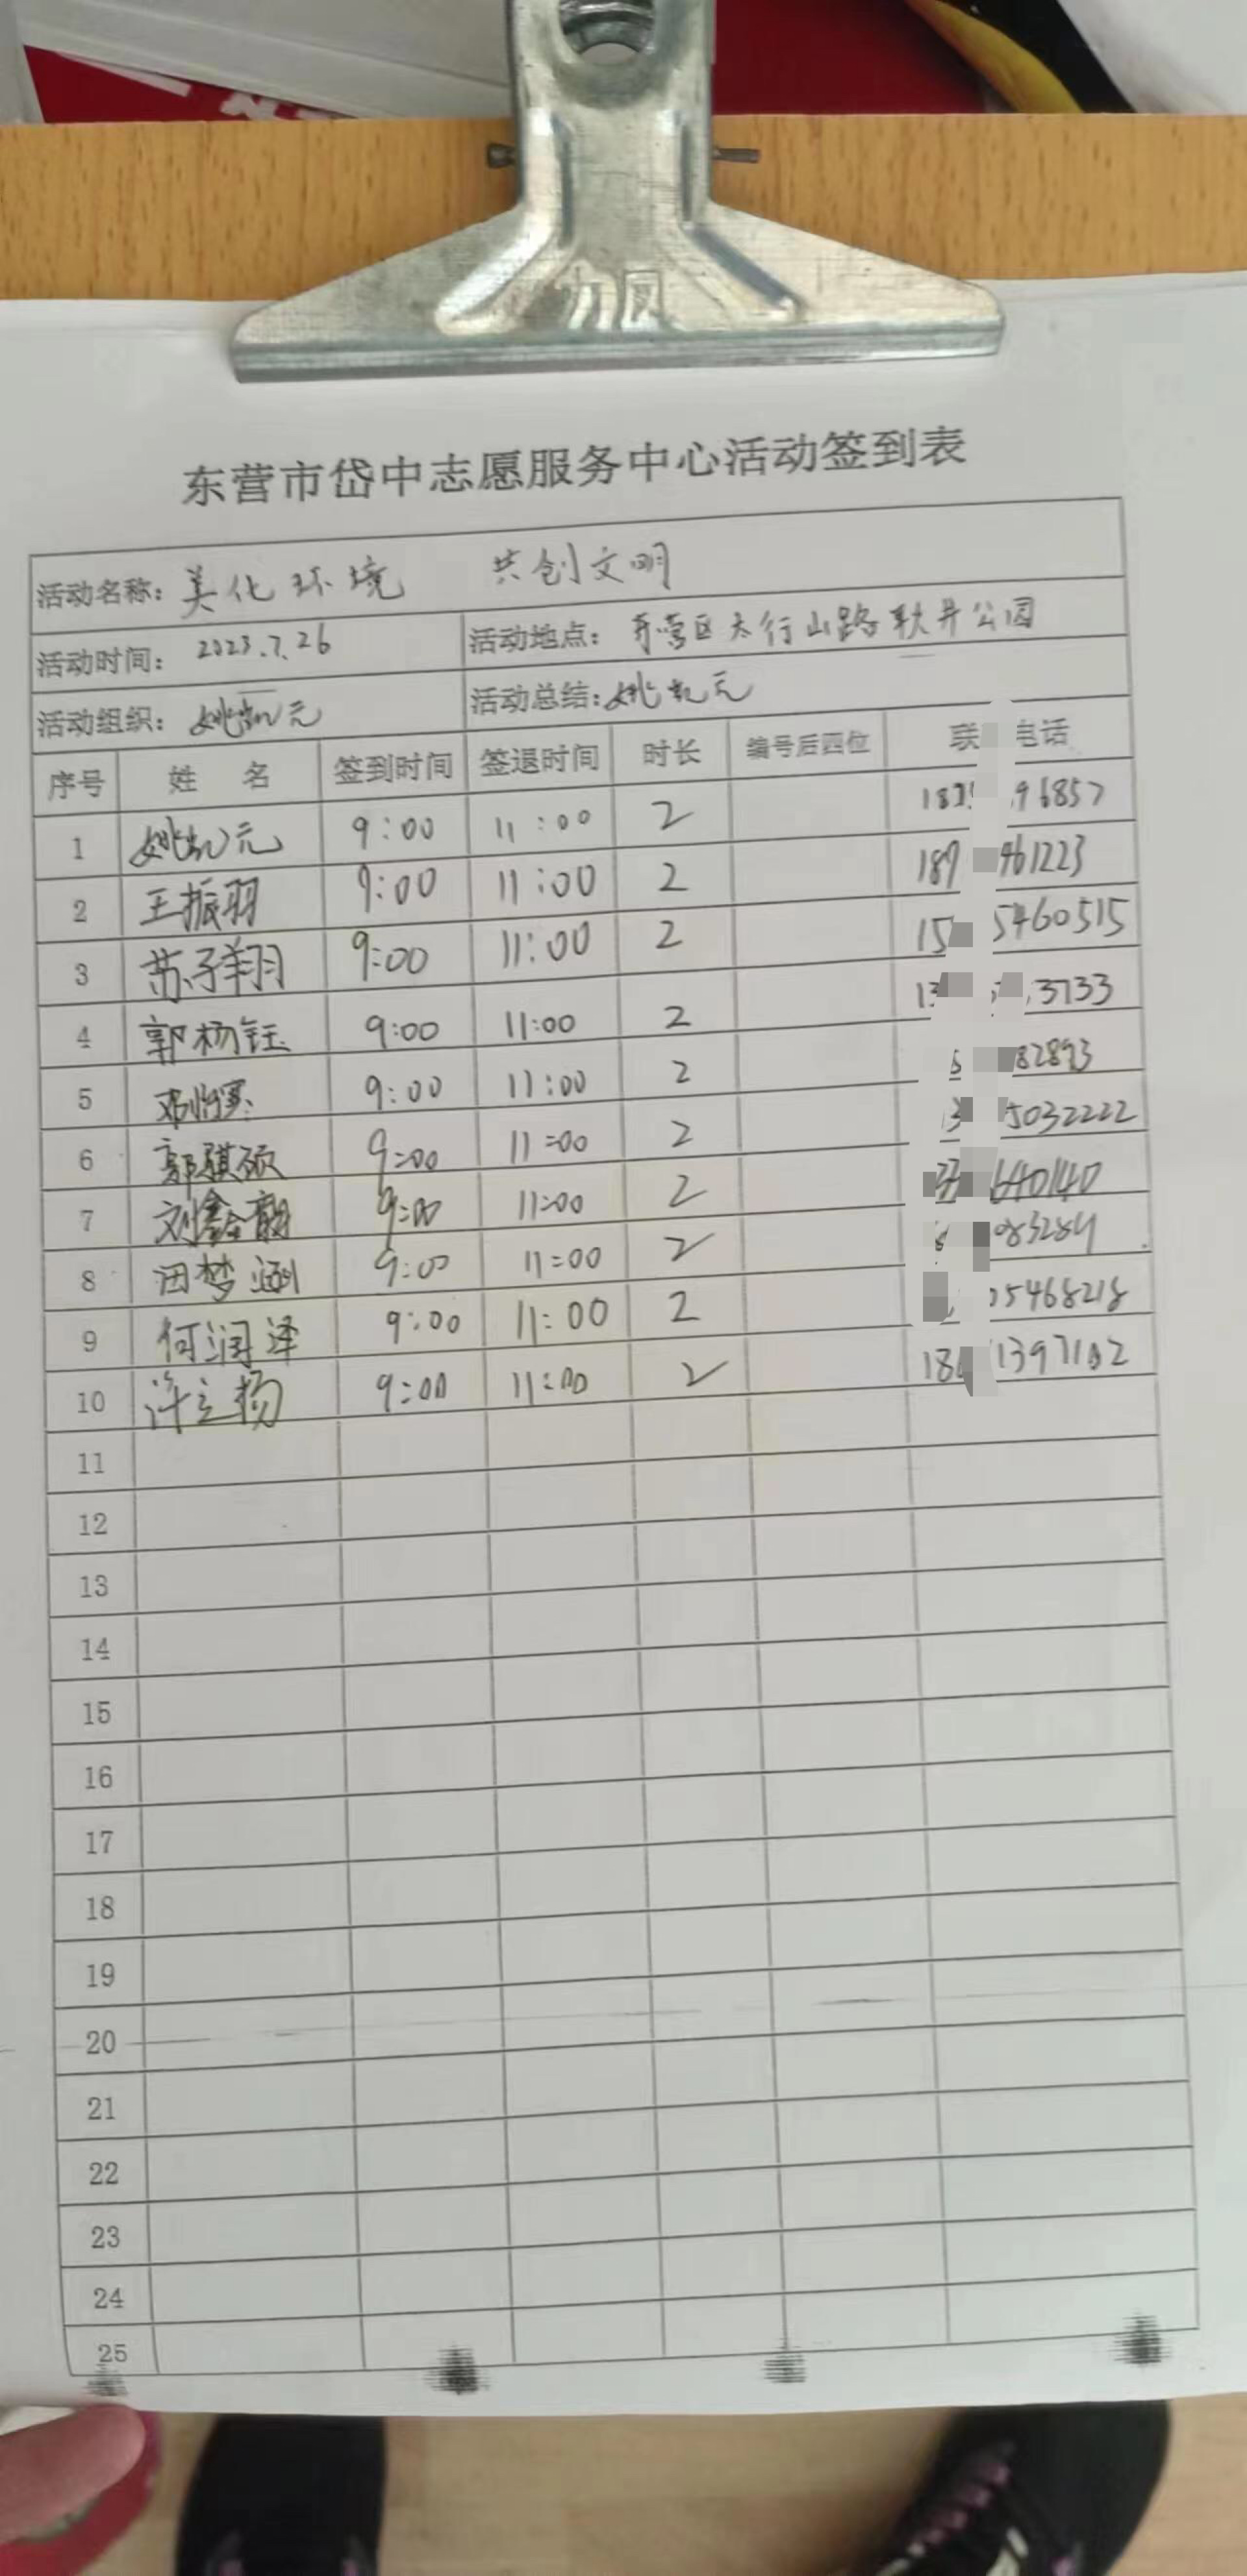 力凤
东营市岱中志愿服务中心活动签到表
活动名称：美化环境 共创文明
活动时间： 2023.7.26 活动地点： 东营区太行山路耿井公园
活动组织： 姚凯元 活动总结：姚凯元
序号 姓 名 签到时间 签退时间 时长 编号后四位 联 电话
1 姚凯元 9:00 11:00 2 96857
2 王振羽 9:00 11:00 2 189 461223
3 苏子翔 9:00 11:00 2 15 5460515
4 郭杨钰 9:00 11:00 2 13 3733
5 邓怡 9:00 11:00 2 82893
6 郭骐硕 9:00 11:00 2 3 5032222
7 刘鑫 9:00 11:00 2 640140
8 田梦涵 9:00 11:00 2 083284
9 何润泽 9:00 11:00 2 5468218
10 许立杨 9:00 11:00 2 18 1397102
11
12
13
14
15
16
17
18
19
20
21
22
23
24
25